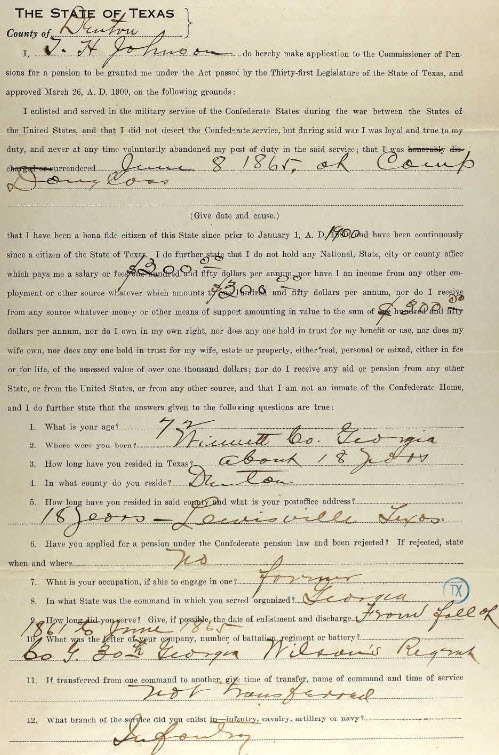 THE STATE OF TEXAS
County of Denton
I, T. H. Johnson do hereby make application to the Commissioner of Pen-
sions for a pension to be granted me under the Act passed by the Thirty-first Legislature of the State of Texas, and
approved March 26, A. D. 1909, on the following grounds:
I enlisted and served in the military service of the Confederate States during the war between the States of
the United States, and that I did not desert the Confederate service, but during said war I was loyal and true to my
duty, and never at any time voluntarily abandoned my post of duty in the said service; that I was honorably dis-
charged or surrendered June 8 1865, at Camp
(Give date and cause.)
that I have been a bona fide citizen of this State since prior to January 1, A. D. 1900 and have been continuously
since a citizen of the State of Texas. I do further state that I do not hold any National, State, city or county office
which pays me a salary or fees $300.00 hundred and fifty dollars per annum, nor have I an income from any other em-
ployment or other source whatever which amounts to $300.00 hundred and fifty dollars per annum, nor do I receive
from any source whatever money or other means of support amounting in value to the sum of $300.00 one hundred and fifty
dollars per annum, nor do I own in my own right, nor does any one hold in trust for my benefit or use, nor does my
wife own, nor does any one hold in trust for my wife, estate or property, either real, personal or mixed, either in fee
or for life, of the assessed value of over one thousand dollars; nor do I receive any aid or pension from any other
State, or from the United States, or from any other source, and that I am not an inmate of the Confederate Home,
and I do further state that the answers given to the following questions are true:
1. What is your age? 72
2. Where were you born? Co. Georgia
3. How long have you resided in Texas? about 18 years
4. In what county do you reside? Denton
5. How long have you resided in said county and what is your postoffice address?
18 years - Lewisville Texas.
6. Have you applied for a pension under the Confederate pension law and been rejected? If rejected, state
when and where no
7. What is your occupation, if able to engage in one? farmer
8. In what State was the command in which you served organized? Georgia
TX
9. How long did you serve? Give, if possible, the date of enlistment and discharge. From fall of
1861 to June 1865
10. What was the letter of your company, number of battalion, regiment or battery?
Co G. 30th Georgia Wilson's Regmt
11. If transferred from one command to another, give time of transfer, name of command and time of service
not transferred
12. What branch of the service did you enlist in—infantry, cavalry, artillery or navy?
Infantry